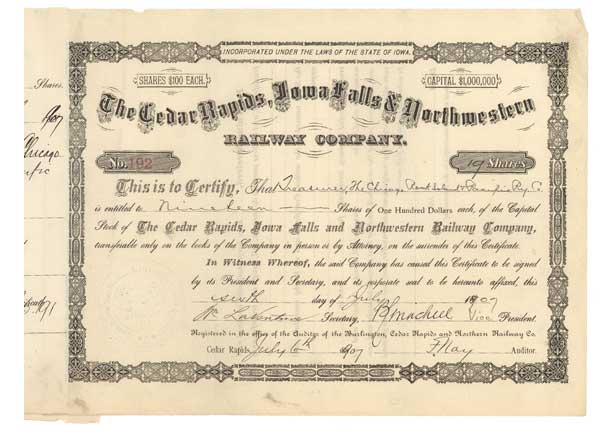 INCORPORATED UNDER THE LAWS OF THE STATE OF IOWA.
SHARES $100 EACH.
CAPITAL $1,000,000
The Cedar Rapids, Iowa Falls & Northwestern
RAILWAY COMPANY.
No. 192
19 Shares
This is to Certify, That Treasurer, The Chicago Rock Island & Pacific Ry. Co.
is entitled to Nineteen Shares of One Hundred Dollars each, of the Capital
Stock of The Cedar Rapids, Iowa Falls and Northwestern Railway Company,
transferable only on the books of the Company in person or by Attorney, on the surrender of this Certificate.
In Witness Whereof, the said Company has caused this Certificate to be signed
by its President and Secretary, and its corporate seal to be hereunto affixed, this
sixth day of July 1907
Secretary, Vice President.
Registered in the office of the Auditor of the Burlington, Cedar Rapids and Northern Railway Co.
Cedar Rapids, July 6th 1907 Auditor.
Shares.
Chicago